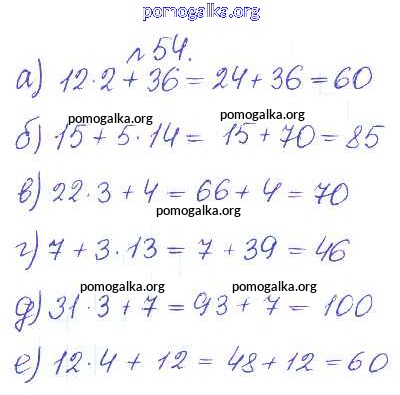 pomogalka.org
№ 54.
а) 12·2 + 36 = 24 + 36 = 60
pomogalka.org pomogalka.org
б) 15 + 5·14 = 15 + 70 = 85
в) 22·3 + 4 = 66 + 4 = 70
pomogalka.org
г) 7 + 3·13 = 7 + 39 = 46
pomogalka.org pomogalka.org
д) 31·3 + 7 = 93 + 7 = 100
е) 12·4 + 12 = 48 + 12 = 60